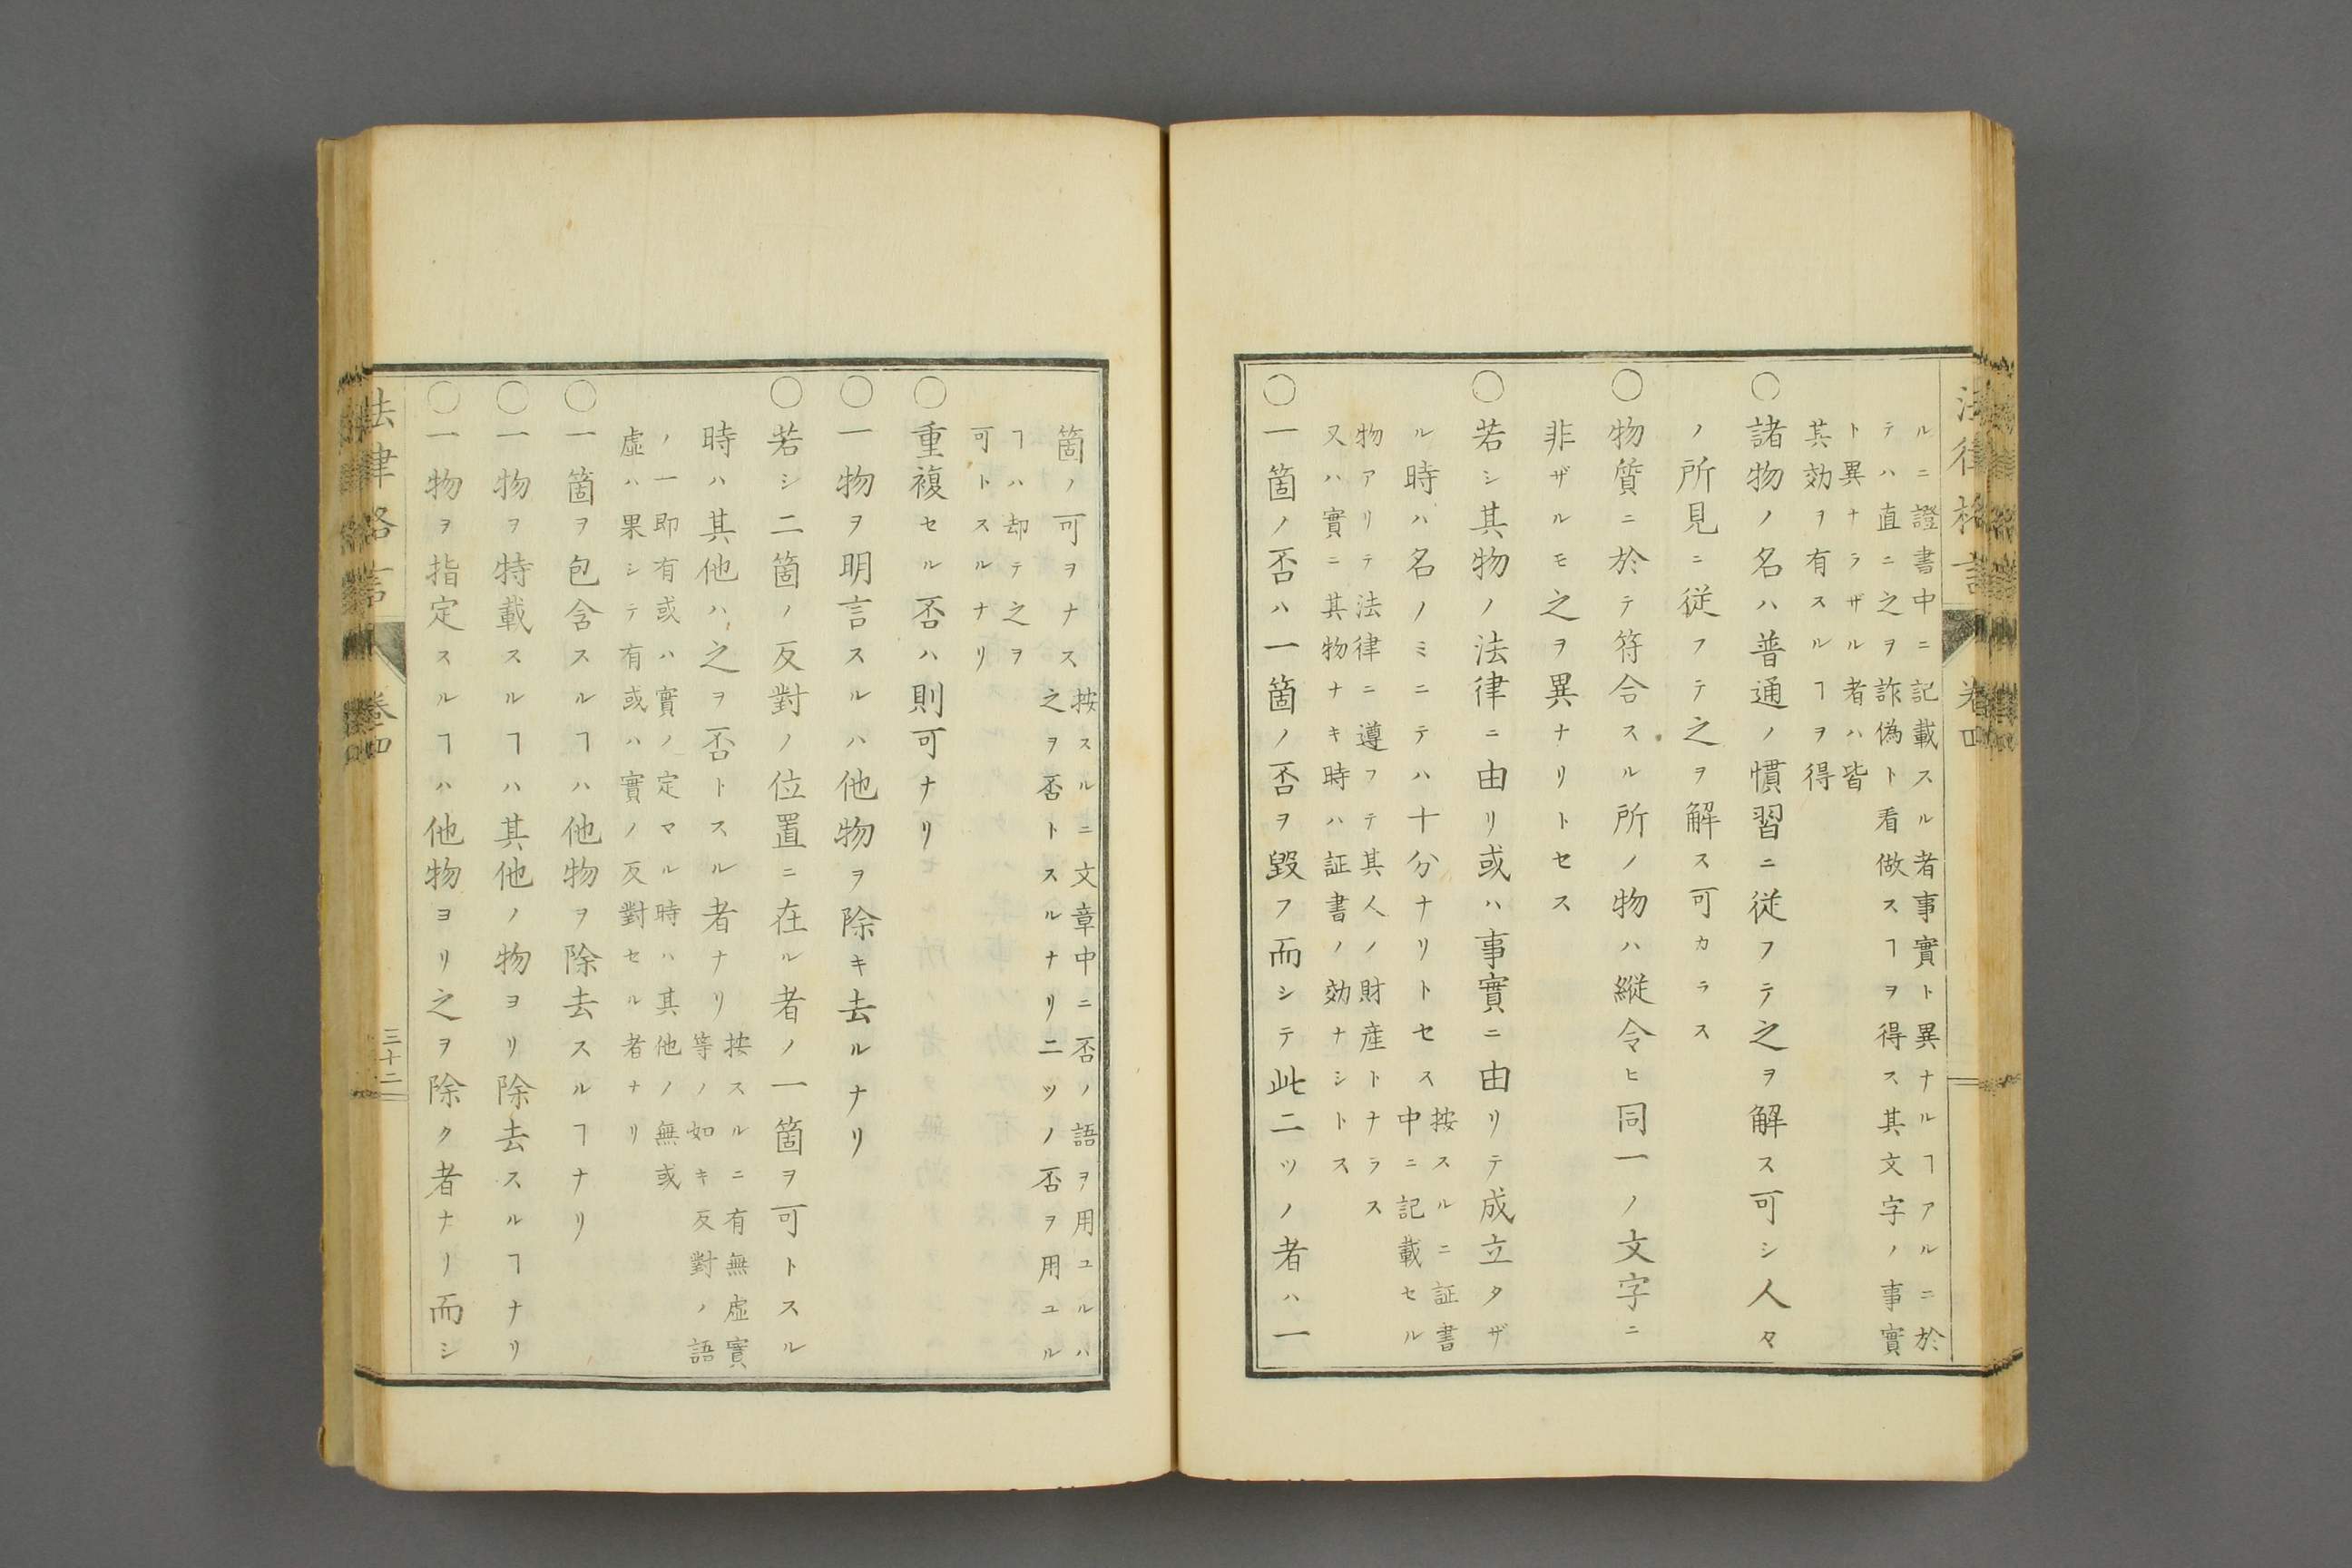 ルニ證書中ニ記載スル者事實ト異ナルヿアルニ於
テハ直ニ之ヲ詐偽ト看做スヿヲ得ス其文字ノ事實
ト異ナラザル者ハ皆
其効ヲ有スルヿヲ得
○諸物ノ名ハ普通ノ慣習ニ従フテ之ヲ解ス可シ人々
ノ所見ニ従フテ之ヲ解ス可カラス
○物質ニ於テ符合スル所ノ物ハ縱令ヒ同一ノ文字ニ
非ザルモ之ヲ異ナリトセス
○若シ其物ノ法律ニ由リ或ハ事實ニ由リテ成立タザ
ル時ハ名ノミニテハ十分ナリトセス
按スルニ証書
中ニ記載セル
物アリテ法律ニ遵フテ其人ノ財産トナラス
又ハ實ニ其物ナキ時ハ証書ノ効ナシトス
○一箇ノ否ハ一箇ノ否ヲ毀フ而シテ此二ツノ者ハ一
法律格言
卷四
箇ノ可ヲナス
按スルニ文章中ニ否ノ語ヲ用ユルハ
之ヲ否トスルナリ二ツノ否ヲ用ユル
ヿハ却テ之ヲ
可トスルナリ
○重複セル否ハ則可ナリ
○一物ヲ明言スルハ他物ヲ除キ去ルナリ
○若シ二箇ノ反對ノ位置ニ在ル者ノ一箇ヲ可トスル
時ハ其他ハ之ヲ否トスル者ナリ
按スルニ有無虛實
等ノ如キ反對ノ語
ノ一即有或ハ實ノ定マル時ハ其他ノ無或
虛ハ果シテ有或ハ實ノ反對セル者ナリ
○一箇ヲ包含スルヿハ他物ヲ除去スルヿナリ
○一物ヲ特載スルヿハ其他ノ物ヨリ除去スルヿナリ
○一物ヲ指定スルヿハ他物ヨリ之ヲ除ク者ナリ而シ
法律格言
卷四
三十二